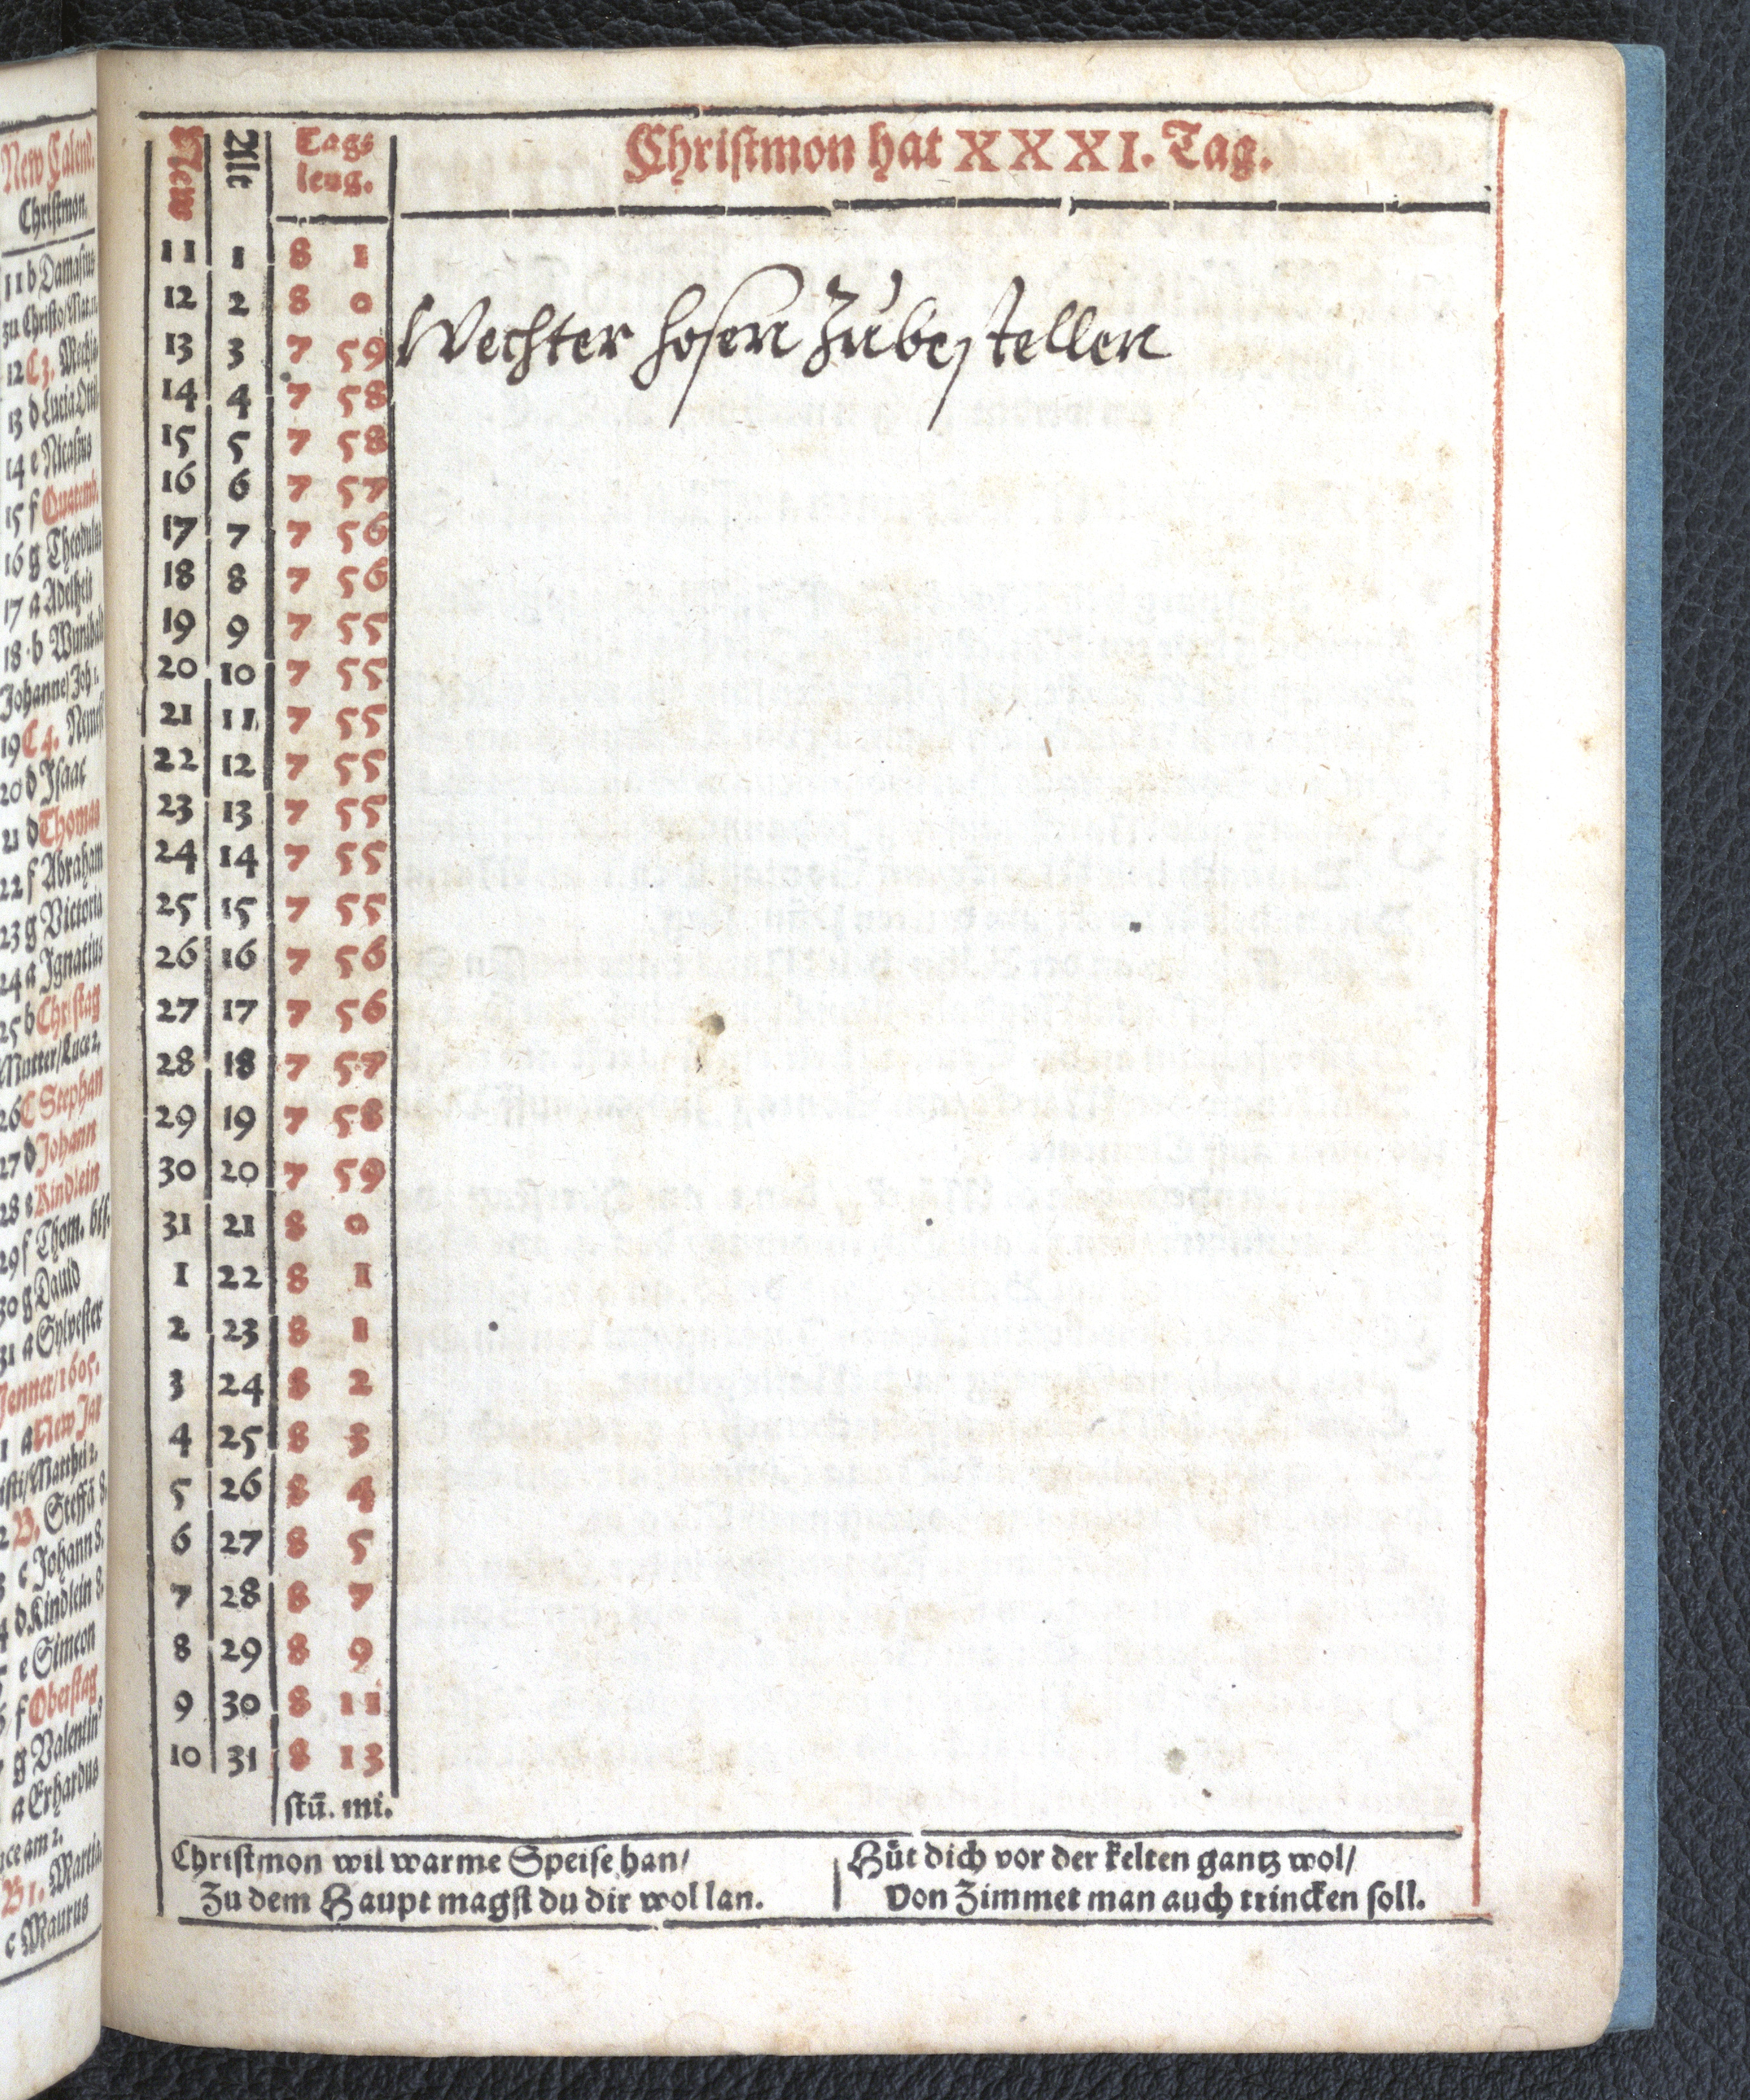 New Calend.
Christmon.
11 b Damasius
zu Christo/Mat.11.
12 C 3.
13 d Lucia Ottil
14 e Nicasius
15 f Quatemb.
16 g Theodulus
17 a Adelheit
18 b Wunibald
Johanne/Joh 1.
19 C 4.
20 d Isaac
21 d Thomas
22 f Abraham
23 g Victoria
24 a Ignatius
25 b Christag
Mutter/Luce 2.
26 C Stephan
27 d Johann
28 e Kindlein
29 f Thom. bis.
30 g Dauid
31 a Sylvester
Jenner/1605.
1 a New Jar
isti/Matthei 2.
2 B. Steffā 8.
3 c Johann 8.
4 d Kindlein 8.
5 e Simeon
6 f Oberstag
g Valentin
a Erhardus
B 1.
c Maurus
New Alt Tags leng. Christmon hat XXXI. Tag.
11 1 8 1
12 2 8 0
13 3 7 59 Wechter hosen Zubestellen
14 4 7 58
15 5 7 58
16 6 7 57
17 7 7 56
18 8 7 56
19 9 7 55
20 10 7 55
21 11 7 55
22 12 7 55
23 13 7 55
24 14 7 55
25 15 7 55
26 16 7 56
27 17 7 56
28 18 7 57
29 19 7 58
30 20 7 59
31 21 8 0
1 22 8 1
2 23 8 1
3 24 8 2
4 25 8 3
5 26 8 4
6 27 8 5
7 28 8 7
8 29 8 9
9 30 8 11
10 31 8 13
stū. mi.
Christmon wil warme Speise han/
Zu dem Haupt magst du dir wol lan.
Hüt dich vor der kelten gantz wol/
Von Zimmet man auch trincken soll.